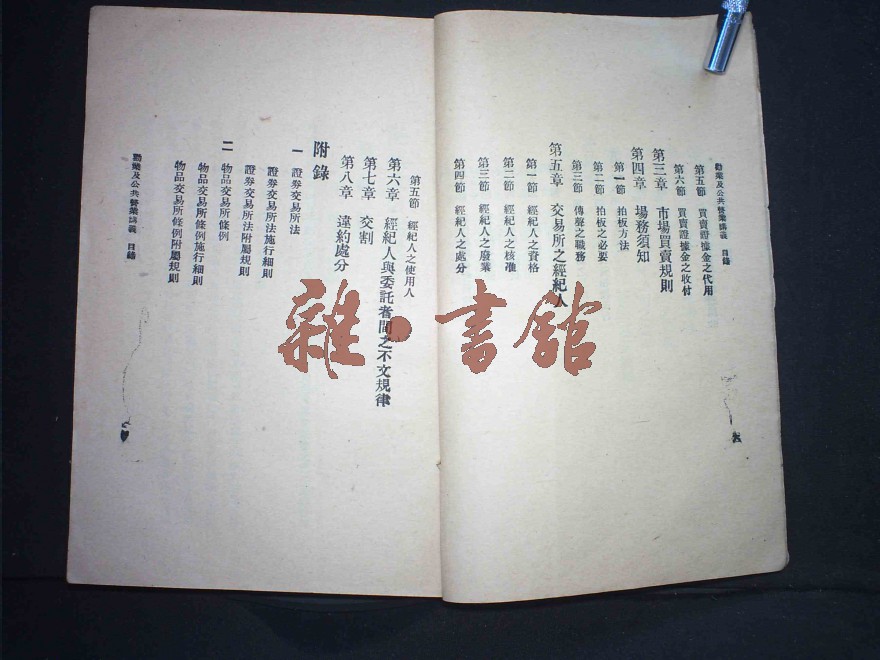 勸業及公共營業講義 目錄
第五節 買賣證據金之代用
第六節 買賣證據金之收付
第三章 市場買賣規則
第四章 場務須知
第一節 拍板方法
第二節 拍板之必要
第三節 傳聲之職務
第五章 交易所之經紀人
第一節 經紀人之資格
第二節 經紀人之核准
第三節 經紀人之廢業
第四節 經紀人之處分
第五節 經紀人之使用人
第六章 經紀人與委託者間之不文規律
第七章 交割
第八章 違約處分
附錄
一 證券交易所法
證券交易所法施行細則
證券交易所法附屬規則
二 物品交易所條例
物品交易所條例施行細則
物品交易所條例附屬規則
勸業及公共營業講義 目錄
雜·書館